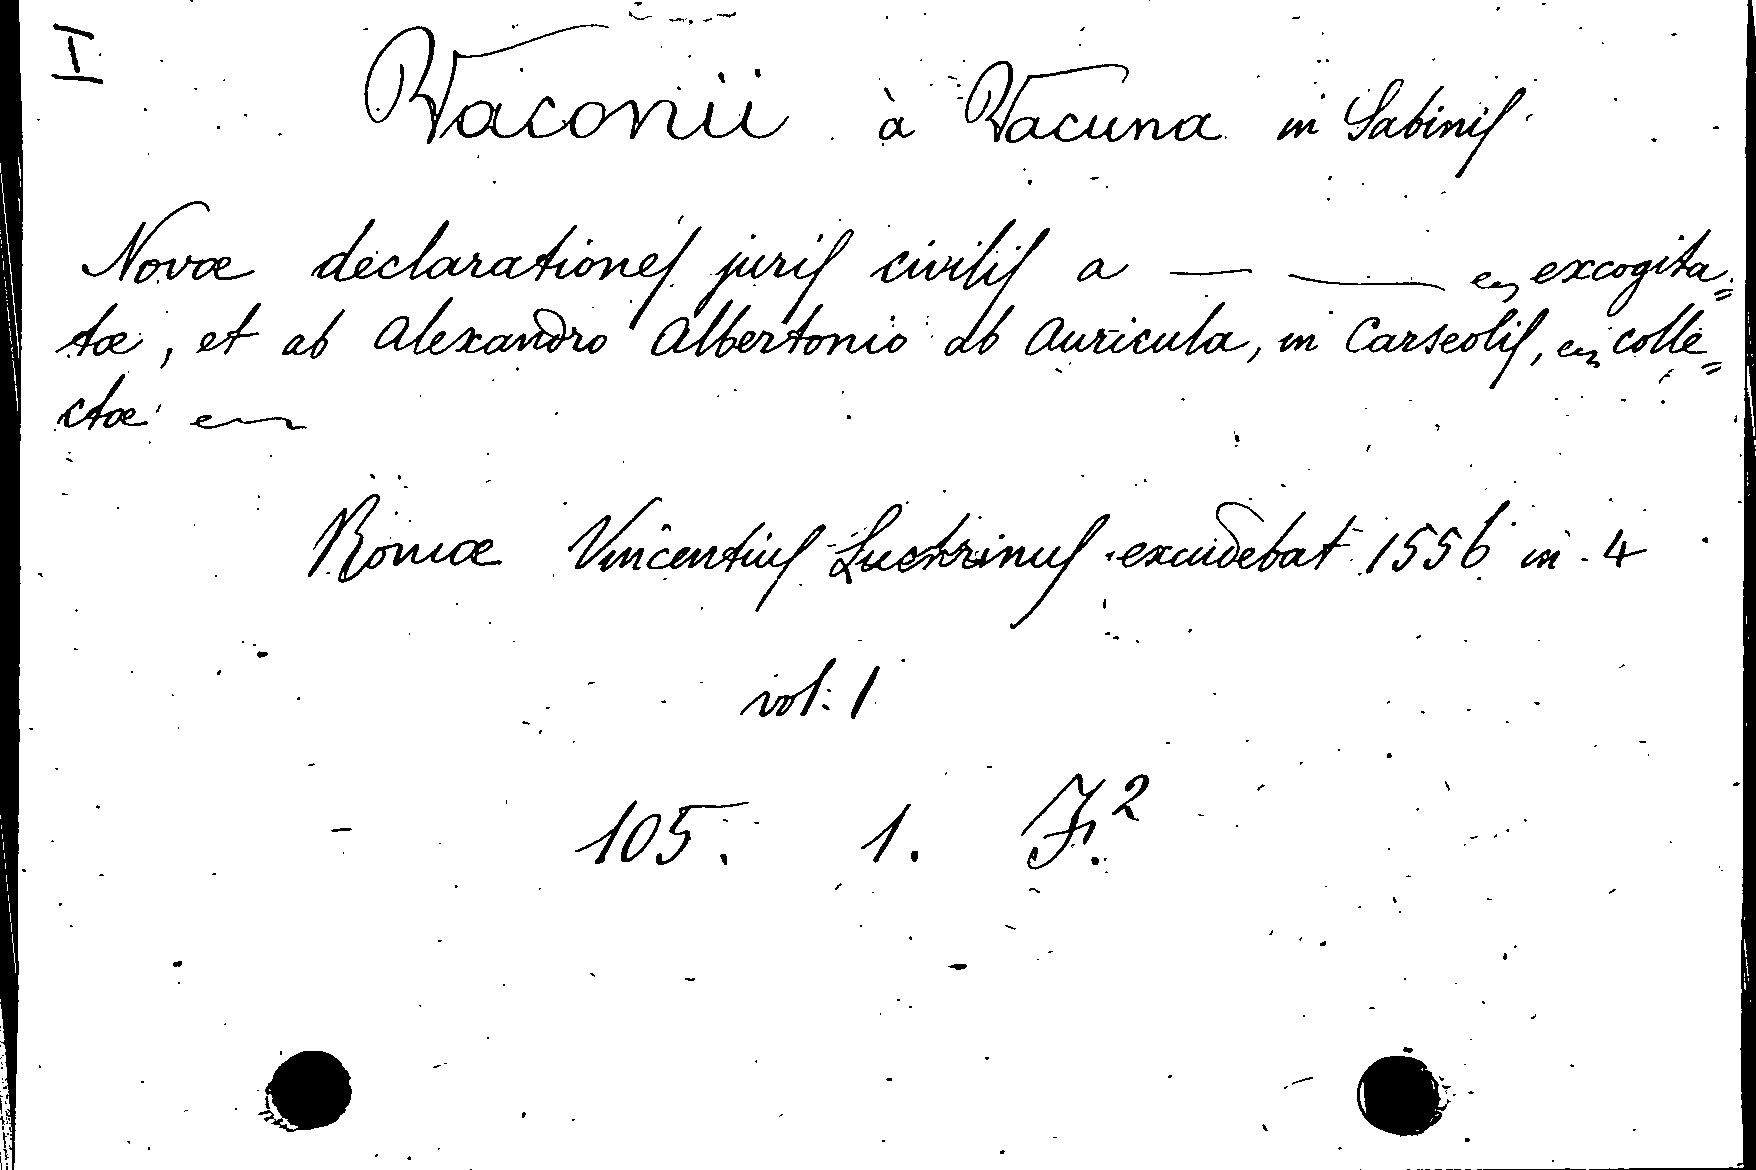 I
Vaconii à Vacuna in Sabinis
Novæ declarationes juris civilis a — — excogita=
tæ, et ab Alexandro Albertonio ab Auricula, in Carseolis, colle=
ctæ
Romæ Vincentius Luchrinus excudebat 1556 in 4
vol. 1
105. 1. F.²